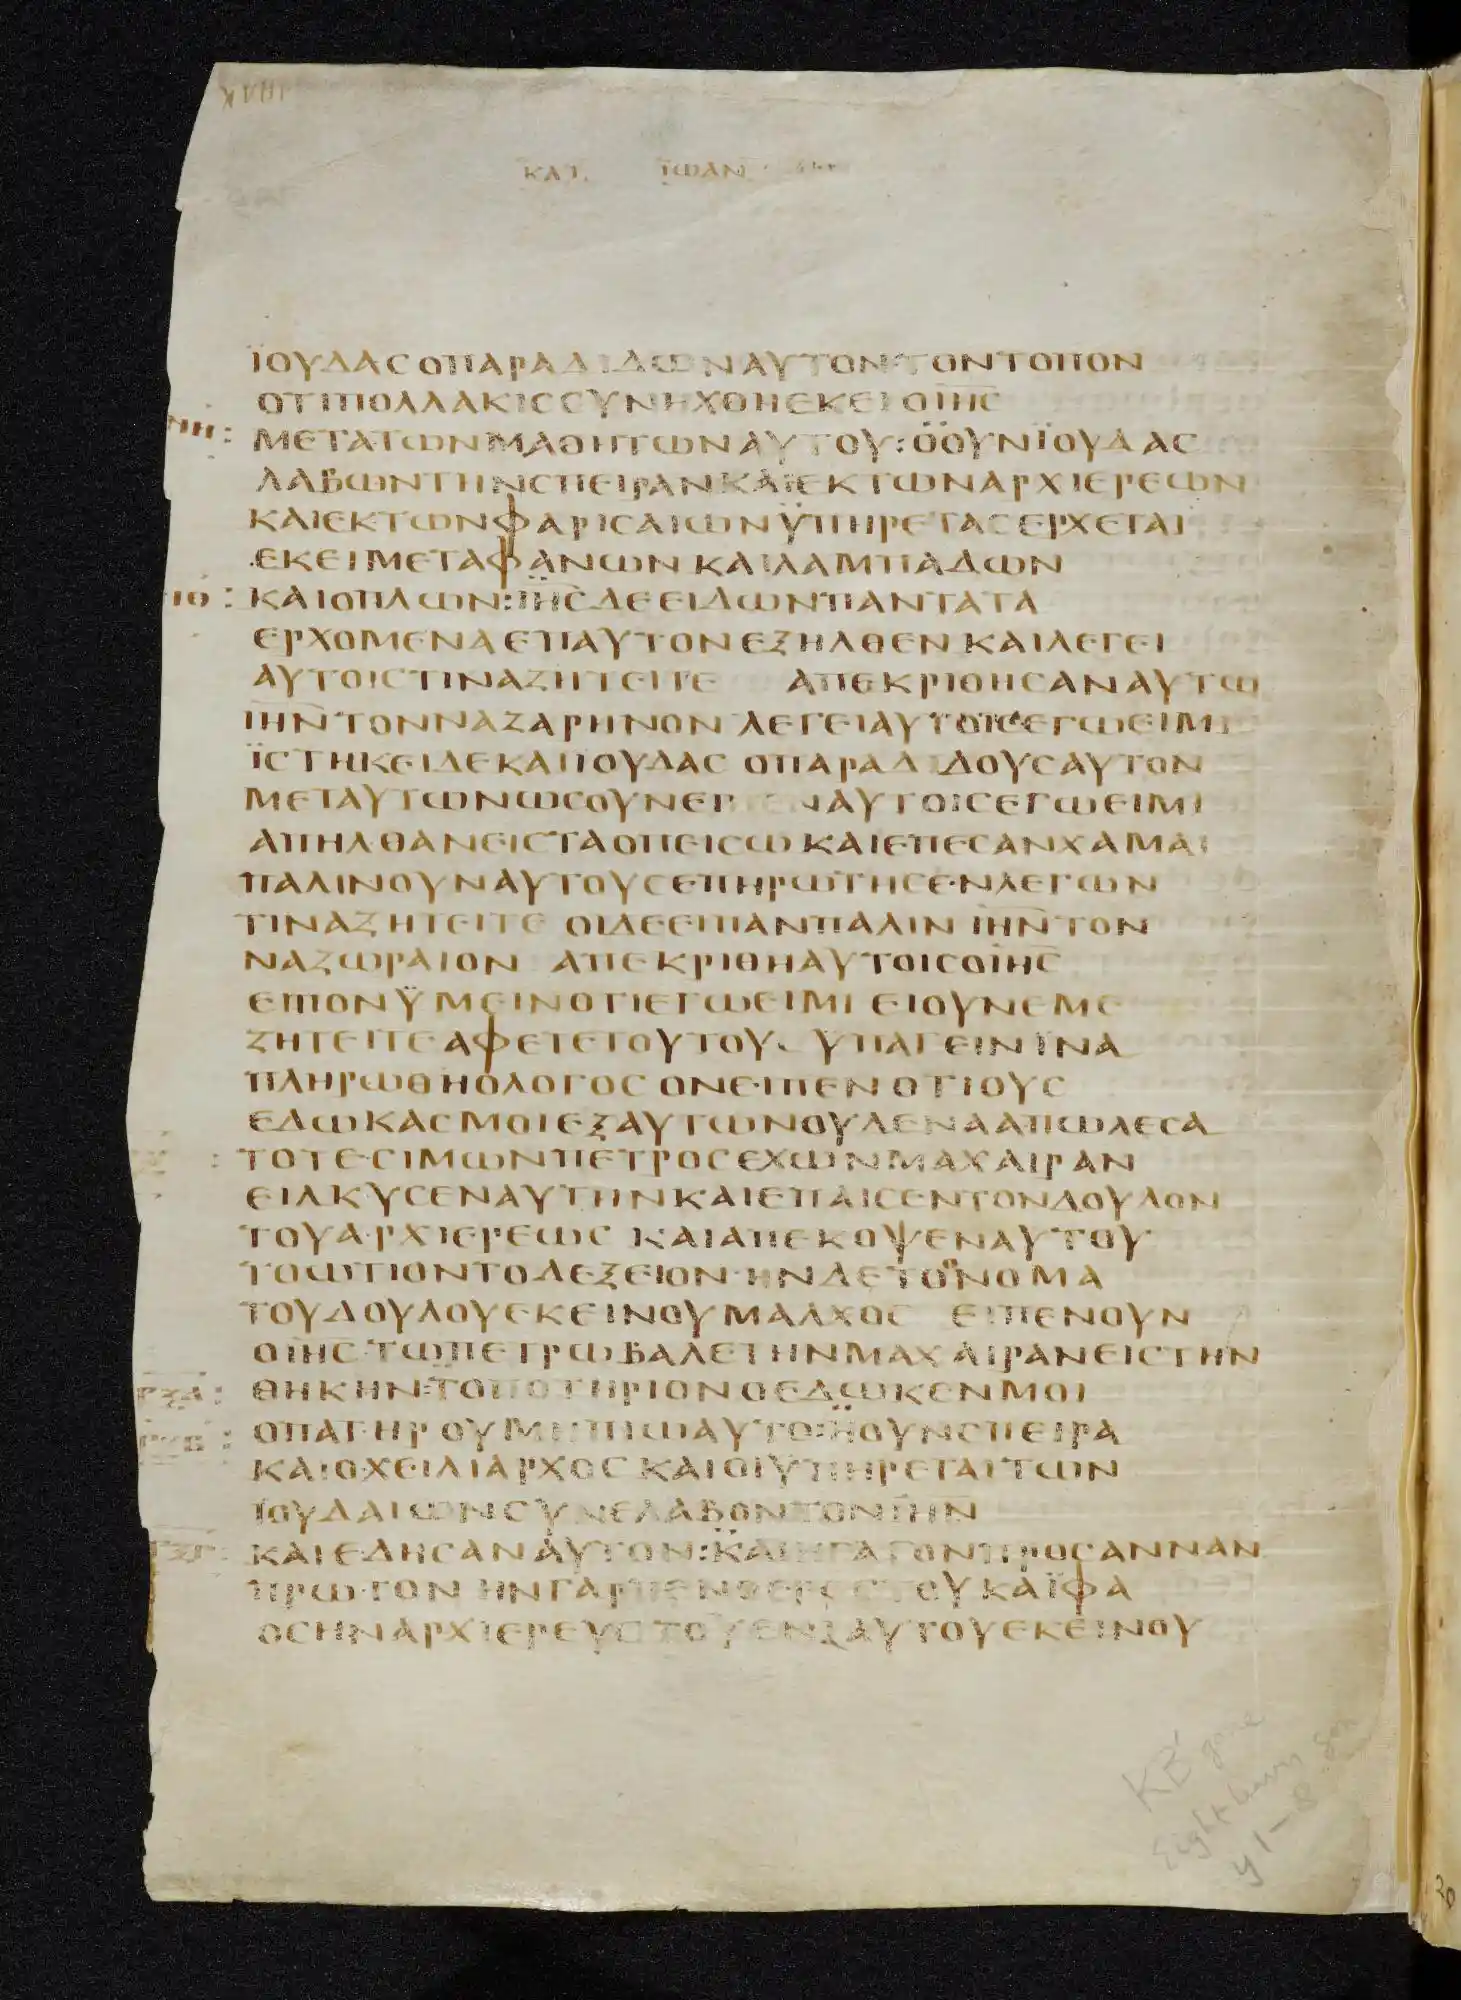 ΚΑΤ ΙΩΑΝ
ΪΟΥΔΑΣ Ο ΠΑΡΑΔΙΔΩΝ ΑΥΤΟΝ ΤΟΝ ΤΟΠΟΝ
ΟΤΙ ΠΟΛΛΑΚΙΣ ΣΥΝΗΧΘΗ ΕΚΕΙ Ο ΙΗΣ
ΝΗ: ΜΕΤΑ ΤΩΝ ΜΑΘΗΤΩΝ ΑΥΤΟΥ: Ο ΟΥΝ ΪΟΥΔΑΣ
ΛΑΒΩΝ ΤΗΝ ΣΠΕΙΡΑΝ ΚΑΙ ΕΚ ΤΩΝ ΑΡΧΙΕΡΕΩΝ
ΚΑΙ ΕΚ ΤΩΝ ΦΑΡΙΣΑΙΩΝ ΫΠΗΡΕΤΑΣ ΕΡΧΕΤΑΙ
ΕΚΕΙ ΜΕΤΑ ΦΑΝΩΝ ΚΑΙ ΛΑΜΠΑΔΩΝ
ΚΑΙ ΟΠΛΩΝ: ΙΗΣ ΔΕ ΕΙΔΩΝ ΠΑΝΤΑ ΤΑ
ΕΡΧΟΜΕΝΑ ΕΠ ΑΥΤΟΝ ΕΞΗΛΘΕΝ ΚΑΙ ΛΕΓΕΙ
ΑΥΤΟΙΣ ΤΙΝΑ ΖΗΤΕΙΤΕ ΑΠΕΚΡΙΘΗΣΑΝ ΑΥΤΩ
ΙΗΝ ΤΟΝ ΝΑΖΑΡΗΝΟΝ ΛΕΓΕΙ ΑΥΤΟΙΣ ΕΓΩ ΕΙΜΙ
ΪΣΤΗΚΕΙ ΔΕ ΚΑΙ ΙΟΥΔΑΣ Ο ΠΑΡΑΔΙΔΟΥΣ ΑΥΤΟΝ
ΜΕΤ ΑΥΤΩΝ ΩΣ ΟΥΝ ΕΙΠΕΝ ΑΥΤΟΙΣ ΕΓΩ ΕΙΜΙ
ΑΠΗΛΘΑΝ ΕΙΣ ΤΑ ΟΠΕΙΣΩ ΚΑΙ ΕΠΕΣΑΝ ΧΑΜΑΙ
ΠΑΛΙΝ ΟΥΝ ΑΥΤΟΥΣ ΕΠΗΡΩΤΗΣΕΝ ΛΕΓΩΝ
ΤΙΝΑ ΖΗΤΕΙΤΕ ΟΙ ΔΕ ΕΙΠΑΝ ΠΑΛΙΝ ΙΗΝ ΤΟΝ
ΝΑΖΩΡΑΙΟΝ ΑΠΕΚΡΙΘΗ ΑΥΤΟΙΣ Ο ΙΗΣ
ΕΙΠΟΝ ΫΜΕΙΝ ΟΤΙ ΕΓΩ ΕΙΜΙ ΕΙ ΟΥΝ ΕΜΕ
ΖΗΤΕΙΤΕ ΑΦΕΤΕ ΤΟΥΤΟΥΣ ΥΠΑΓΕΙΝ ΙΝΑ
ΠΛΗΡΩΘΗ Ο ΛΟΓΟΣ ΟΝ ΕΙΠΕΝ ΟΤΙ ΟΥΣ
ΕΔΩΚΑΣ ΜΟΙ ΕΞ ΑΥΤΩΝ ΟΥΔΕΝΑ ΑΠΩΛΕΣΑ
ΤΟΤΕ ΣΙΜΩΝ ΠΕΤΡΟΣ ΕΧΩΝ ΜΑΧΑΙΡΑΝ
ΕΙΛΚΥΣΕΝ ΑΥΤΗΝ ΚΑΙ ΕΠΑΙΣΕΝ ΤΟΝ ΔΟΥΛΟΝ
ΤΟΥ ΑΡΧΙΕΡΕΩΣ ΚΑΙ ΑΠΕΚΟΨΕΝ ΑΥΤΟΥ
ΤΟ ΩΤΙΟΝ ΤΟ ΔΕΞΕΙΟΝ ΗΝ ΔΕ ΤΟ ΟΝΟΜΑ
ΤΟΥ ΔΟΥΛΟΥ ΕΚΕΙΝΟΥ ΜΑΛΧΟΣ ΕΙΠΕΝ ΟΥΝ
Ο ΙΗΣ ΤΩ ΠΕΤΡΩ ΒΑΛΕ ΤΗΝ ΜΑΧΑΙΡΑΝ ΕΙΣ ΤΗΝ
ΘΗΚΗΝ: ΤΟ ΠΟΤΗΡΙΟΝ Ο ΕΔΩΚΕΝ ΜΟΙ
Ο ΠΑΤΗΡ ΟΥ ΜΗ ΠΙΩ ΑΥΤΟ: Η ΟΥΝ ΣΠΕΙΡΑ
ΚΑΙ Ο ΧΕΙΛΙΑΡΧΟΣ ΚΑΙ ΟΙ ΥΠΗΡΕΤΑΙ ΤΩΝ
ΙΟΥΔΑΙΩΝ ΣΥΝΕΛΑΒΟΝ ΤΟΝ ΙΗΝ
ΚΑΙ ΕΔΗΣΑΝ ΑΥΤΟΝ: ΚΑΙ ΗΓΑΓΟΝ ΠΡΟΣ ΑΝΝΑΝ
ΠΡΩΤΟΝ ΗΝ ΓΑΡ ΠΕΝΘΕΡΟΣ ΤΟΥ ΚΑΪΦΑ
ΟΣ ΗΝ ΑΡΧΙΕΡΕΥΣ ΤΟΥ ΕΝΙΑΥΤΟΥ ΕΚΕΙΝΟΥ
ΚΕ gone
Eight leaves gone